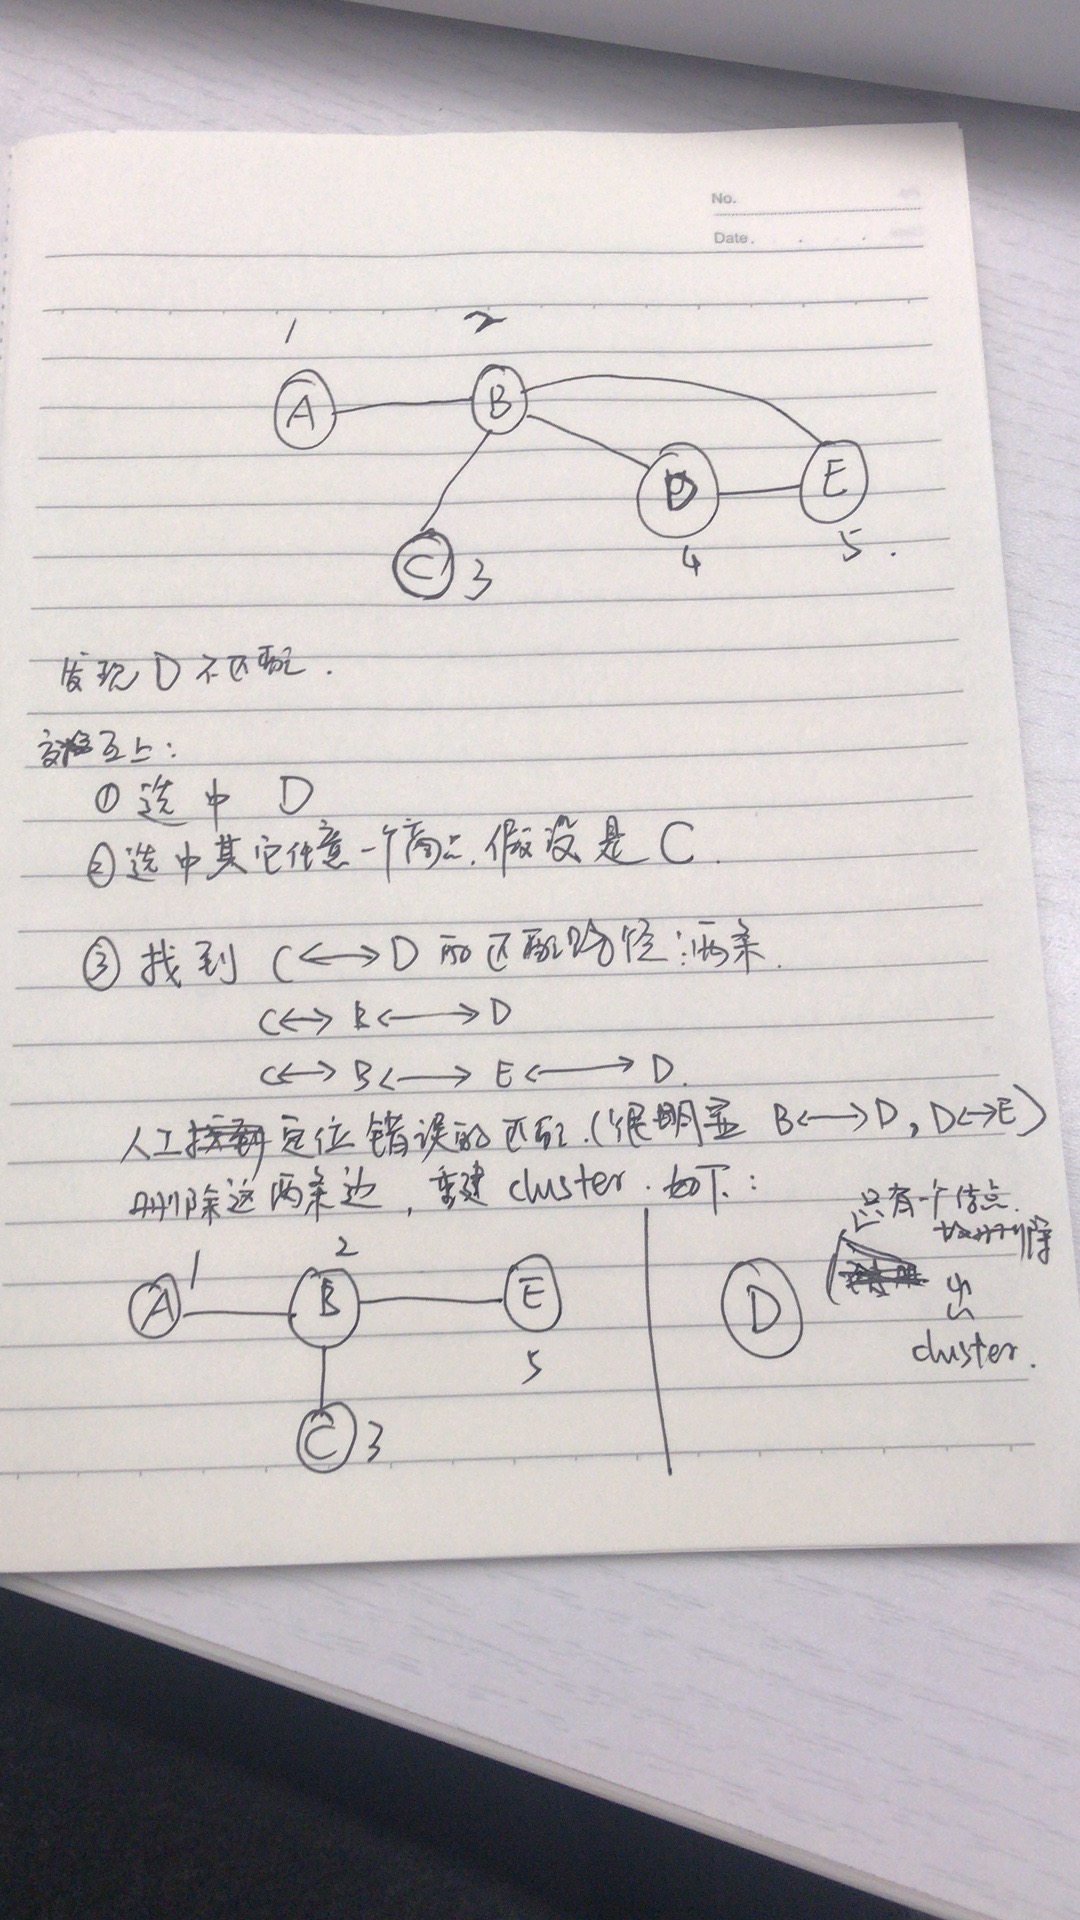 No.
Date.
1 2
A B
D E
C 3 4 5.
发现 D 不匹配.
交互上:
① 选中 D
② 选中其它任意一个商品, 假设是 C.
③ 找到 C↔D 的匹配路径: 两条.
C↔B↔D
C↔B↔E↔D.
人工定位错误的匹配. (很明显 B↔D, D↔E)
删除这两条边, 重建 cluster. 如下:
只有一个结点.
删除
1 2
A B E D
cluster.
5
C 3